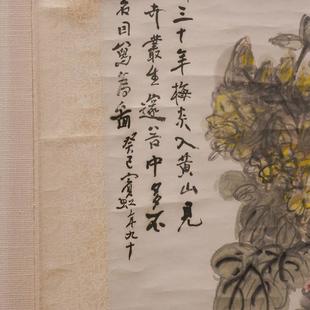 三十年梅炎入黃山見
卉叢生邃谷中多不
名目寫 癸巳賓虹年九十